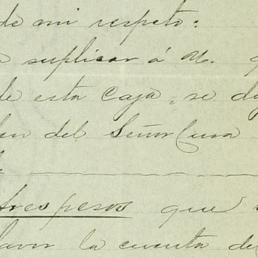 de mi respeto:
suplicar á U.
de esta Caja, se di
den del Señor Cura
tres pesos que
favor la cuenta de